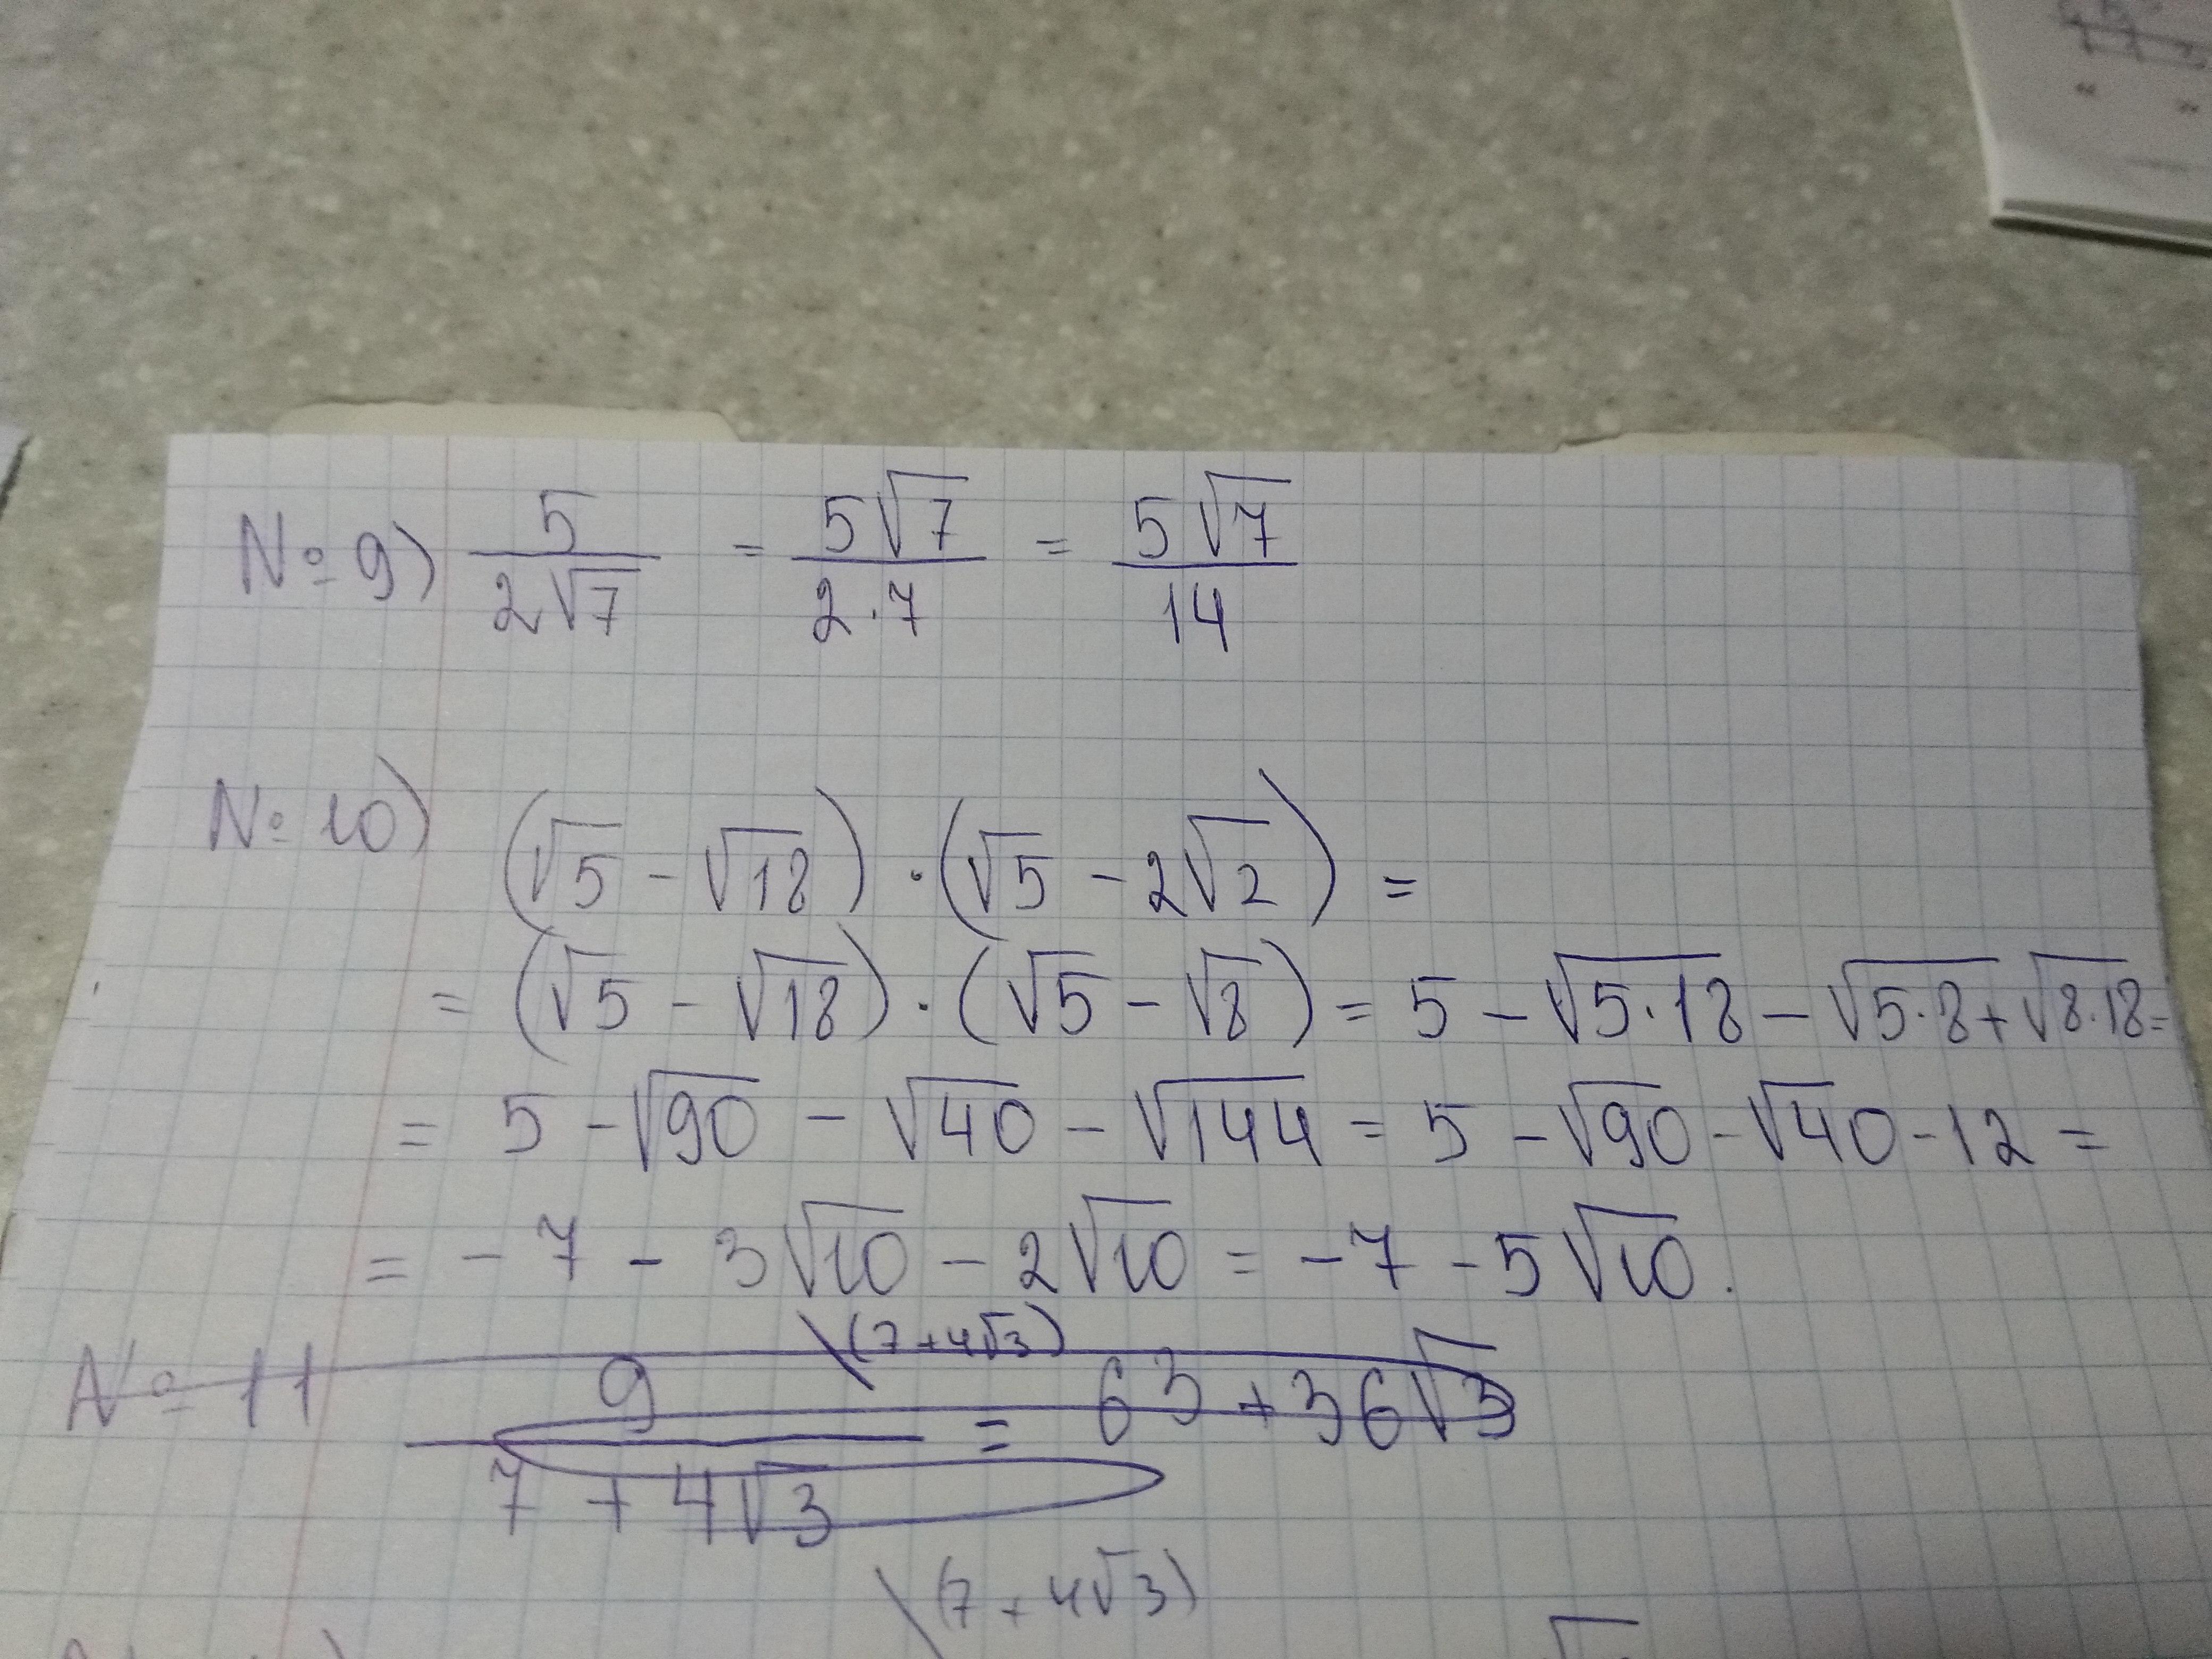 № 9) 5/(2√7) = 5√7/(2·7) = 5√7/14
№ 10) (√5 - √18) · (√5 - 2√2) =
= (√5 - √18) · (√5 - √8) = 5 - √5·18 - √5·8 + √8·18 =
= 5 - √90 - √40 - √144 = 5 - √90 - √40 - 12 =
= -7 - 3√10 - 2√10 = -7 - 5√10.
№ 11 9/(7 + 4√3) \(7+4√3) = 63 + 36√3
\(7 + 4√3)